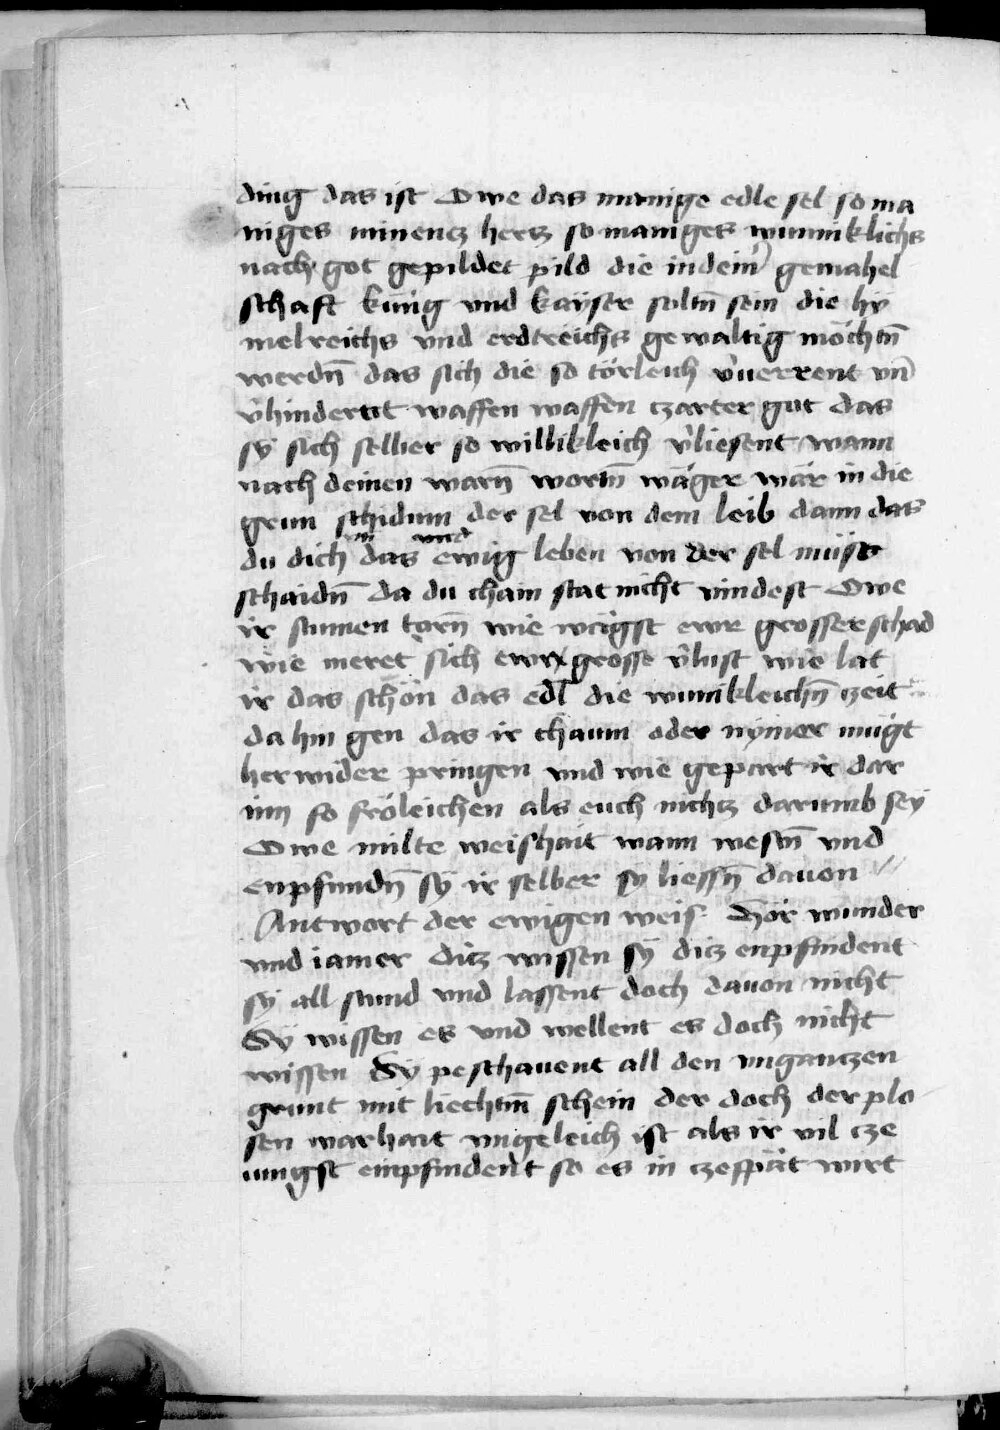 ding das ist Owe das minnige edle sel so ma
niges minentz hertz so maniges wunniklichs
nach got gepildet pild die in dein̄ gemahel
schaft künig vnd kaÿser soltn̄ sein die hÿ
melreichs vnd erdtreichs gewaltig möchtn̄
werdn̄ das sich die so törleich v̉uerrent vn̄
v̉hindertt waffen waffen czarter got das
sÿ sich selber so willikleich v̉liesent wann
nach deinen warn̄ wortn̄ wäger wär in die
grim schidum der sel von dem leib dann das
du dich vnd das ewig leben von der sel müst
schaidn̄ da du chain stat nicht vindest Owe
ir tummen torn̄ wie wägst ewr grosser schad
wie meret sich ewr grosse v̉lust wie lat
ir das schön das edl̄ die wunikleichn̄ czeit
da hin gen das ir chaum oder nÿmer mügt
her wider pringen vnd wie gepart ir dar
inn so fröleichen als euch nichtz darumb seÿ
Owe milte weishait wann westn̄ vnd
enpfundn̄ sÿ ir selber sÿ liessn̄ dauon
Antwort der ewigen weis Hör wunder
vnd iamer ditz wissen sÿ ditz enpfindent
sÿ all stund vnd lassent doch dauon nicht
Sÿ wissen es vnd wellent es doch nicht
wissen Sÿ peschauent all den vngantzen
grunt mit liechtm̄ schein der doch der plo
sen warhait vngeleich ist als ir vil cze
iungst einpfindent so es in czespät wirt